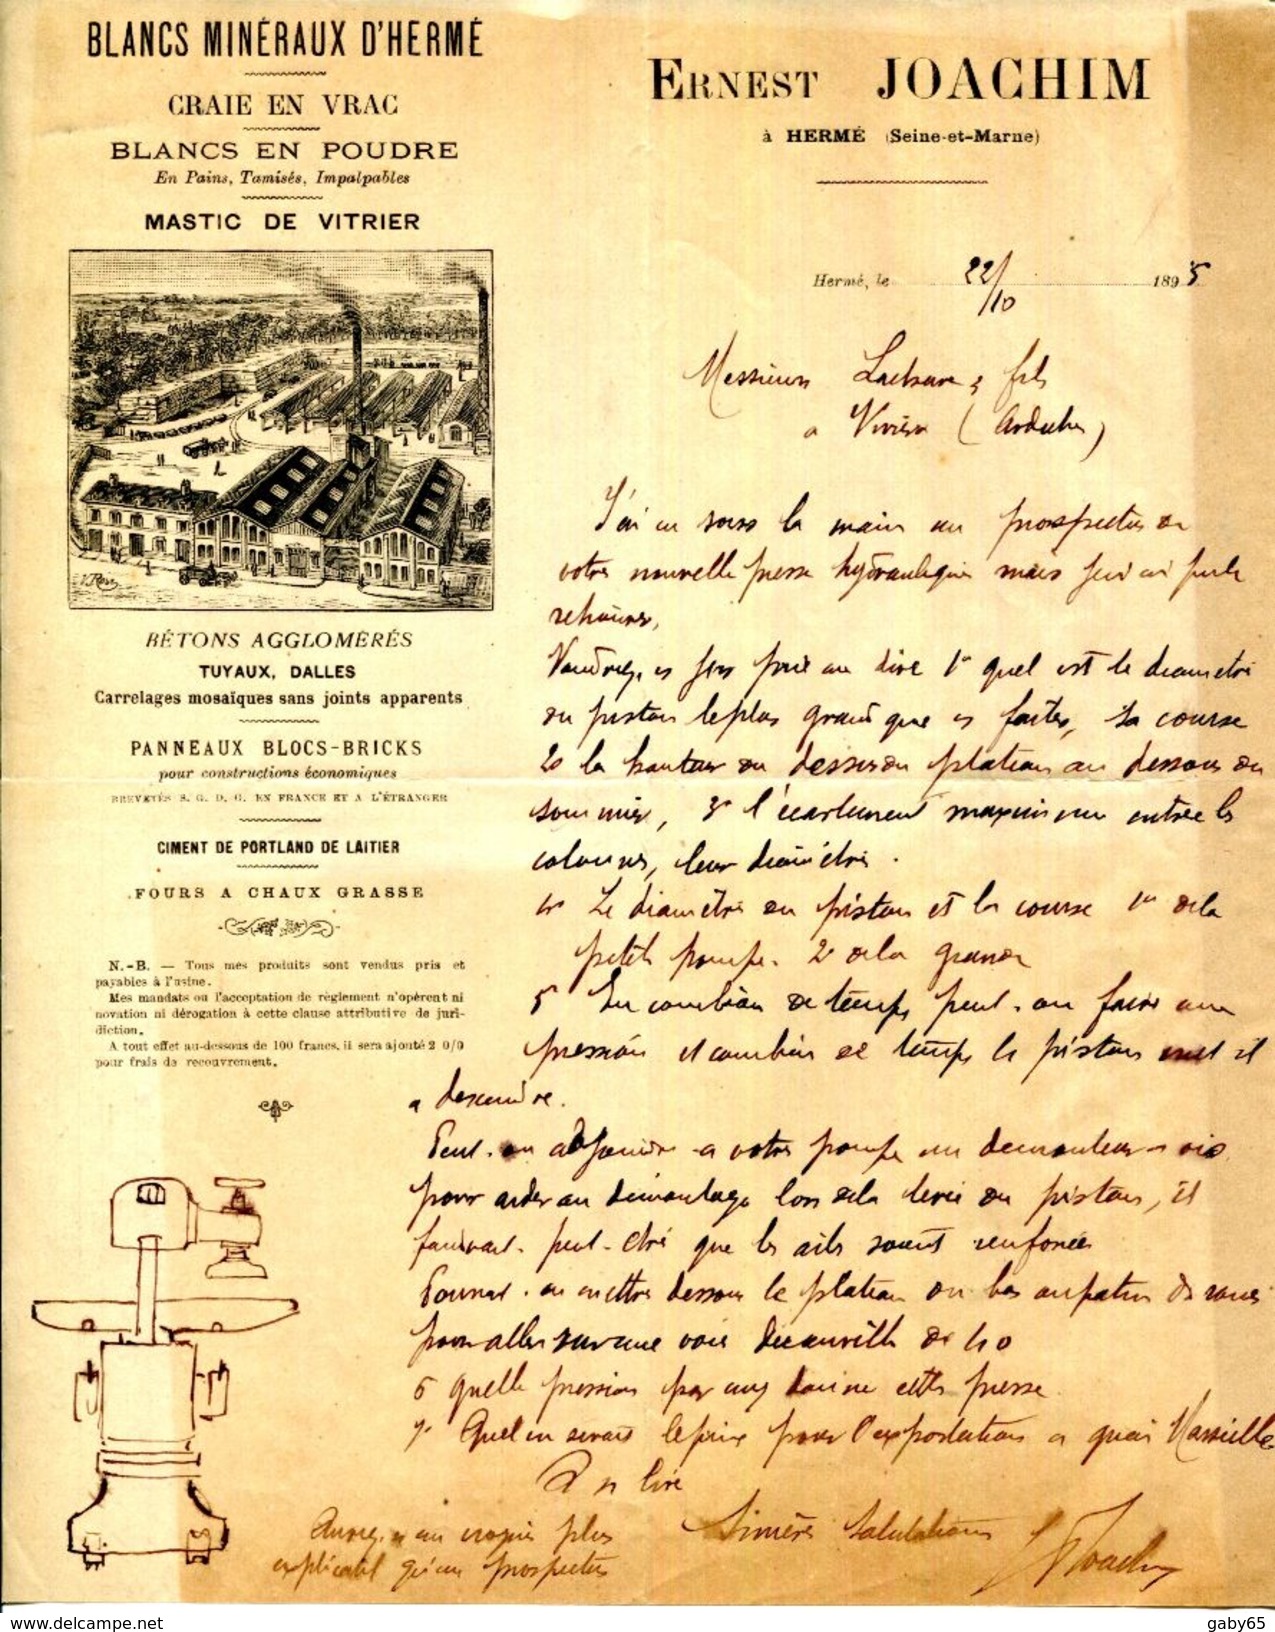 BLANCS MINÉRAUX D'HERMÉ
CRAIE EN VRAC
BLANCS EN POUDRE
En Pains, Tamisés, Impalpables
MASTIC DE VITRIER
BÉTONS AGGLOMÉRÉS
TUYAUX, DALLES
Carrelages mosaïques sans joints apparents
PANNEAUX BLOCS-BRICKS
pour constructions économiques
BREVETÉS S. G. D. G. EN FRANCE ET A L'ÉTRANGER
CIMENT DE PORTLAND DE LAITIER
FOURS A CHAUX GRASSE
N.-B. — Tous mes produits sont vendus pris et
payables à l'usine.
Mes mandats ou l'acceptation de règlement n'opèrent ni
novation ni dérogation à cette clause attributive de juri-
diction.
A tout effet au-dessous de 100 francs, il sera ajouté 2 0/0
pour frais de recouvrement.
ERNEST JOACHIM
à HERMÉ (Seine-et-Marne)
Hermé, le 22/10 1895
Messieurs & fils
a Viviers (Ardèche)
J'ai eu sous la main un prospectus de
votre nouvelle presse hydraulique mais j'en ai
retrouver,
Voudriez vs je vs prie me dire 1° quel est le diametre
du piston le plus grand que vs faites, sa course
2° la hauteur du dessus du plateau au dessous du
sommier, 3° l'écartement maximum entre les
colonnes, leur diamètre.
4° Le diamètre du piston et la course 1° de la
petite pompe. 2° de la grande
5° En combien de temps peut-on faire une
pression et combien de temps le piston met il
a descendre.
Peut-on adjoindre a votre pompe un demouleur a vis
pour aider au démoulage lors de la levée du piston, il
faudrait peut-être que les ails soient renforcées
Pourrait-on mettre dessous le plateau du bas de roues
pour aller sur une voie decauville de 40
6 quelle pression par cmq donne cette presse
7° Quel en serait le prix pour l'exportation a quai Marseille
A vs lire
Sincères Salutations
EJoachim
Avez vs un croquis plus
explicatif qu'un prospectus
delcampe.net
gaby65